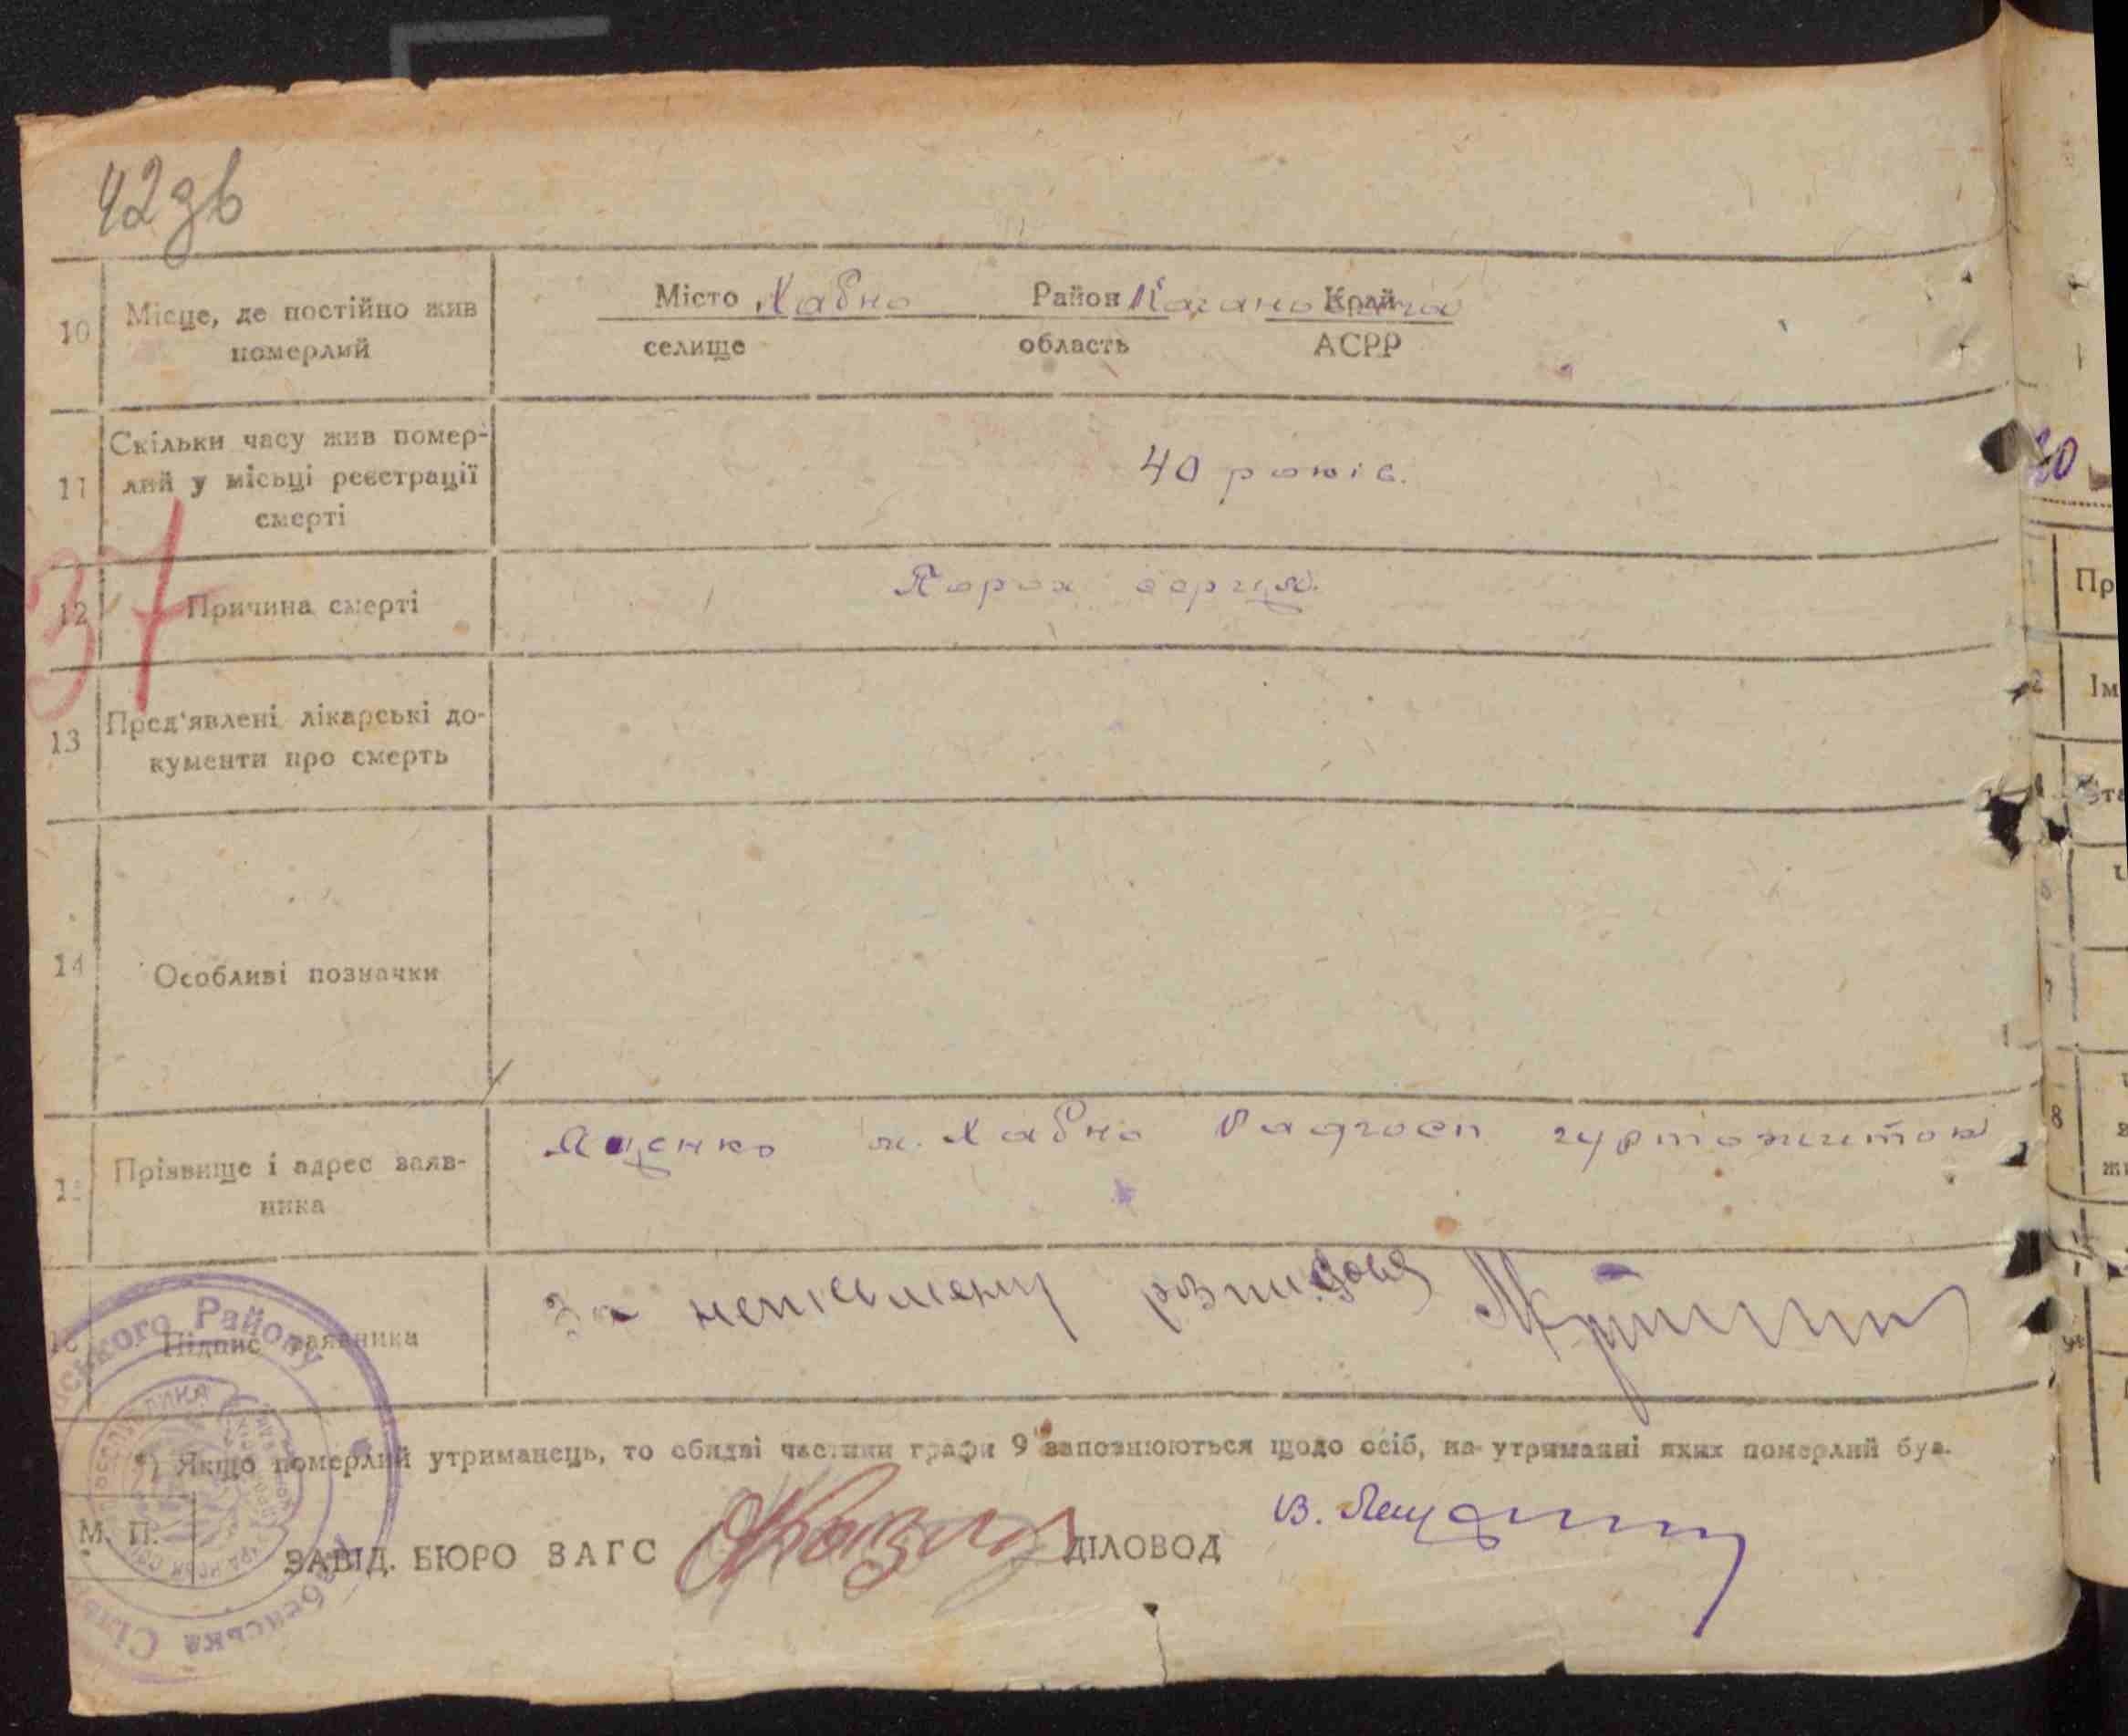 42 зв
10 Місце, де постійно жив померлий
Місто Хабно Район Кагановичів Край
селище область АСРР
11 Скільки часу жив помер-
лий у місьці реєстрації
смерті
40 років.
37
12 Причина смерті
Порок серця.
13 Пред'явлені лікарські до-
кументи про смерть
14 Особливі позначки
Пріввище і адрес заяв-
ника
Яценко м. Хабно Радгосп гуртожиток
Підпис заявника
За неписьмену розписався
*) Якщо померлий утриманець, то обидві частини графи 9 заповнюються щодо осіб, на утриманні яких померлий був.
М. П.
ЗАВІД. БЮРО ЗАГС
ДІЛОВОД
ського Району
20
Пр
2 Ім
8